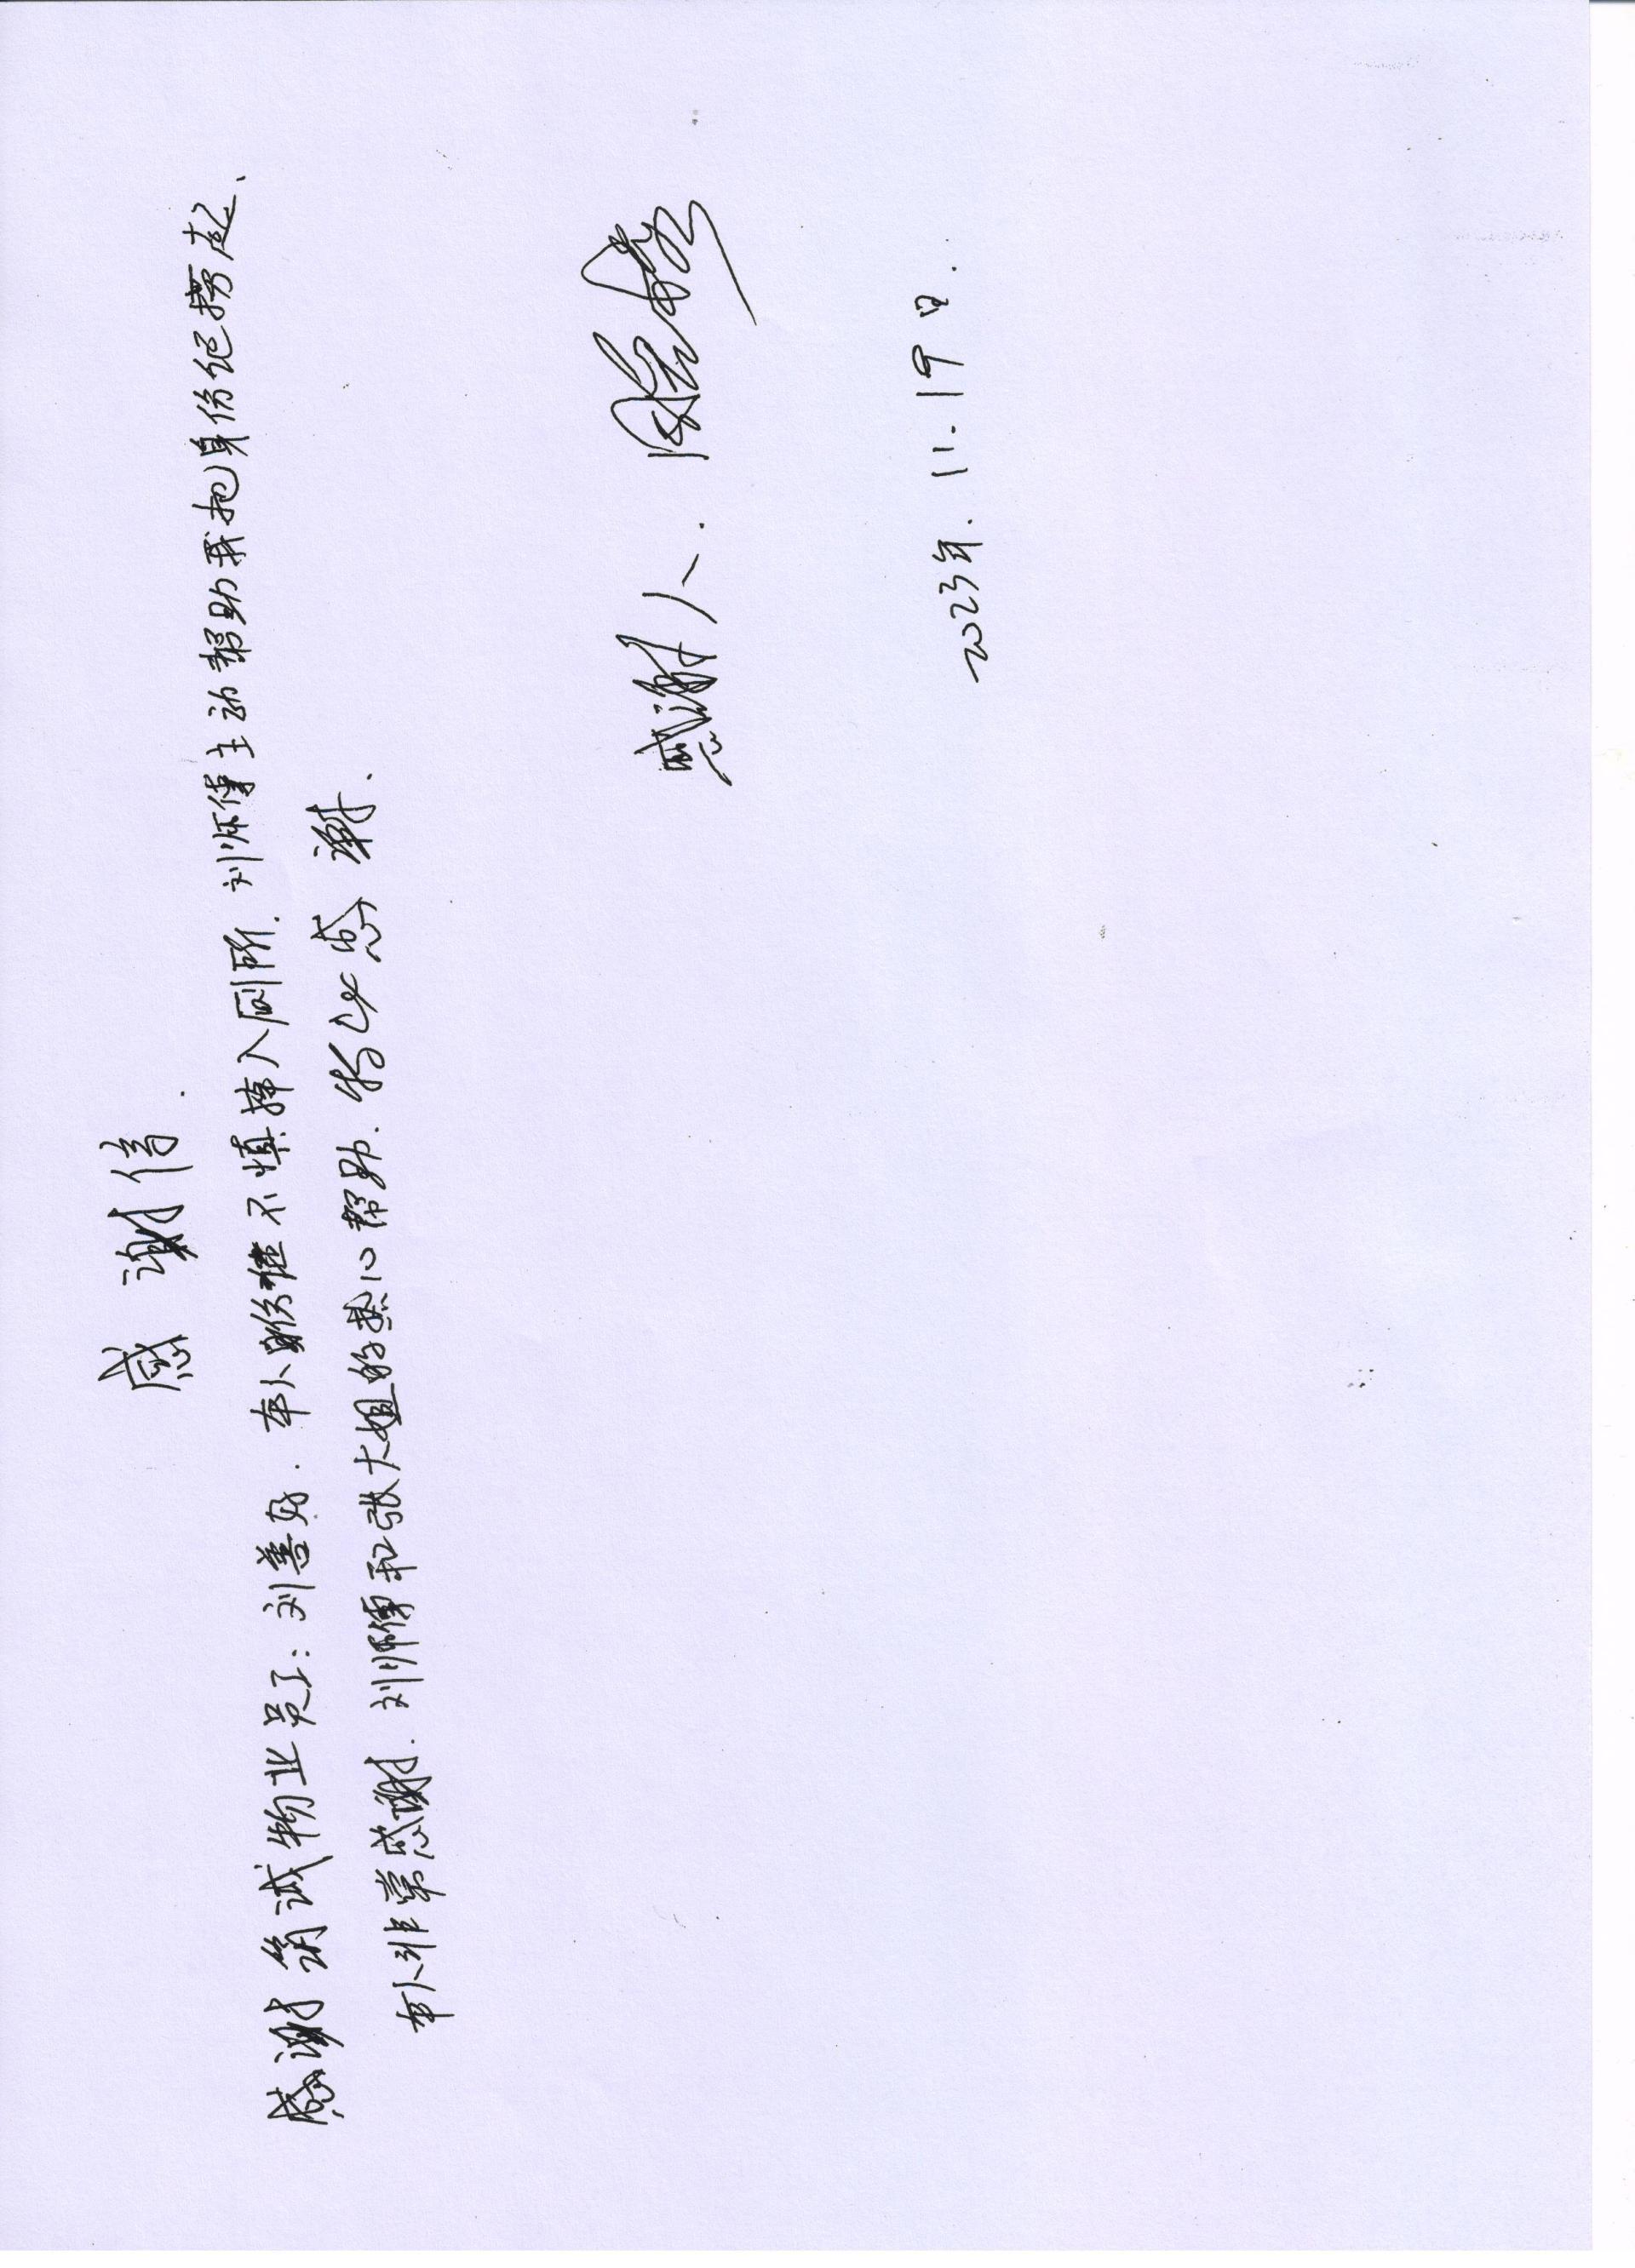 感谢信.
感谢筑诚物业员工:刘善.本人身份证不慎掉入厕所.刘师傅主动帮助我把身份证捞起、
本人非常感谢.刘师傅和张大姐的热心帮助.特此感谢.
感谢人.
2023年.11.19日.